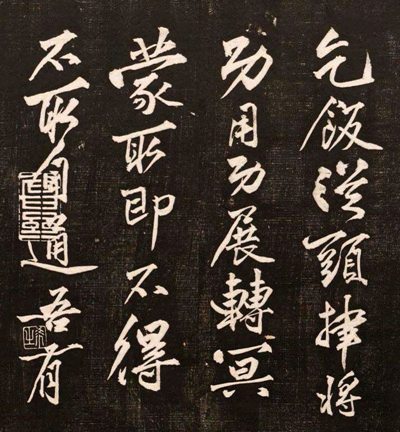 乞飯從頭律將
功用功展轉冥
蒙取即不得
不取自通吾有